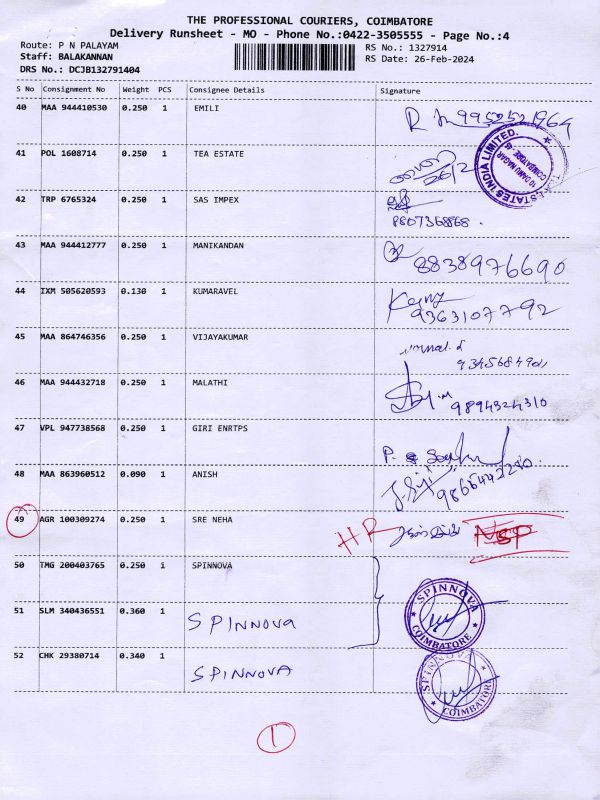 THE PROFESSIONAL COURIERS, COIMBATORE
Delivery Runsheet - MO - Phone No.:0422-3505555 - Page No.:4
Route: P N PALAYAM
Staff: BALAKANNAN
DRS No.: DCJB132791404
RS No.: 1327914
RS Date: 26-Feb-2024
S No Consignment No Weight PCS Consignee Details Signature
40 MAA 944410530 0.250 1 EMILI
R 9952521964
41 POL 1608714 0.250 1 TEA ESTATE
26/2
ESTATES INDIA LIMITED.
COIMBATORE
42 TRP 6765324 0.250 1 SAS IMPEX
43 MAA 944412777 0.250 1 MANIKANDAN
8838976690
44 IXM 505620593 0.130 1 KUMARAVEL
9363107792
45 MAA 864746356 0.250 1 VIJAYAKUMAR
46 MAA 944432718 0.250 1 MALATHI
9894324310
47 VPL 947738568 0.250 1 GIRI ENRTPS
P.
48 MAA 863960512 0.090 1 ANISH
49 AGR 100309274 0.250 1 SRE NEHA
HR NSP
50 TMG 200403765 0.250 1 SPINNOVA
51 SLM 340436551 0.360 1 SPINNOVA
SPINNOVA
COIMBATORE
52 CHK 29380714 0.340 1 SPINNOVA
SPINNOVA
COIMBATORE
1